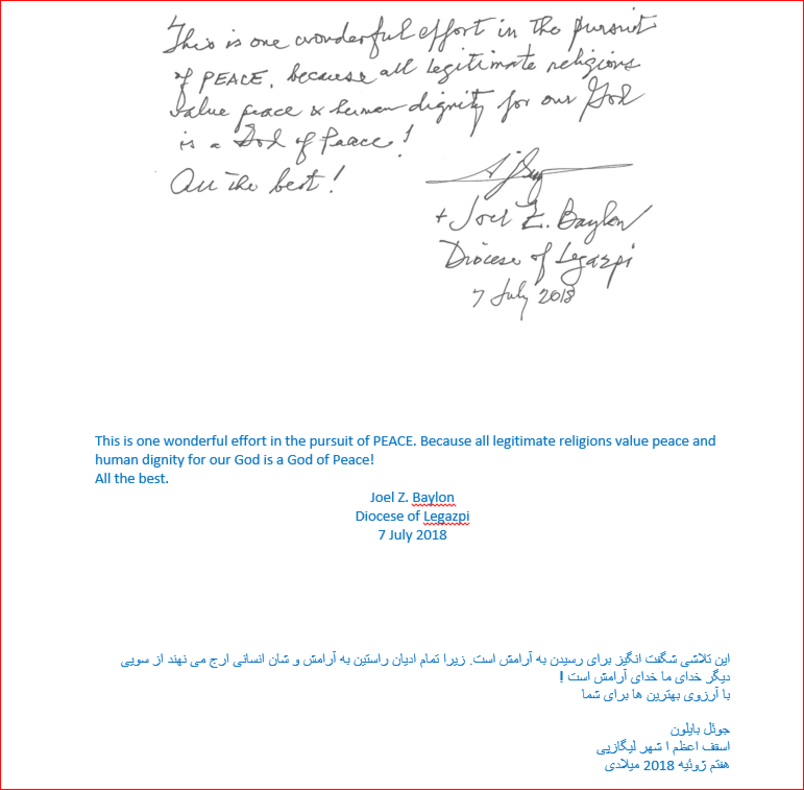 This is one wonderful effort in the pursuit
of PEACE, because all legitimate religions
value peace & human dignity for our God
is a God of Peace!
All the best!
+ Joel Z. Baylon
Diocese of Legazpi
7 July 2018
This is one wonderful effort in the pursuit of PEACE. Because all legitimate religions value peace and
human dignity for our God is a God of Peace!
All the best.
Joel Z. Baylon
Diocese of Legazpi
7 July 2018
این تلاشی شگفت انگیز برای رسیدن به آرامش است. زیرا تمام ادیان راستین به آرامش و شان انسانی ارج می نهند از سویی
دیگر خدای ما خدای آرامش است !
با آرزوی بهترین ها برای شما
جوئل بایلون
اسقف اعظم ا شهر لیگازپی
هفتم ژوئیه 2018 میلادی